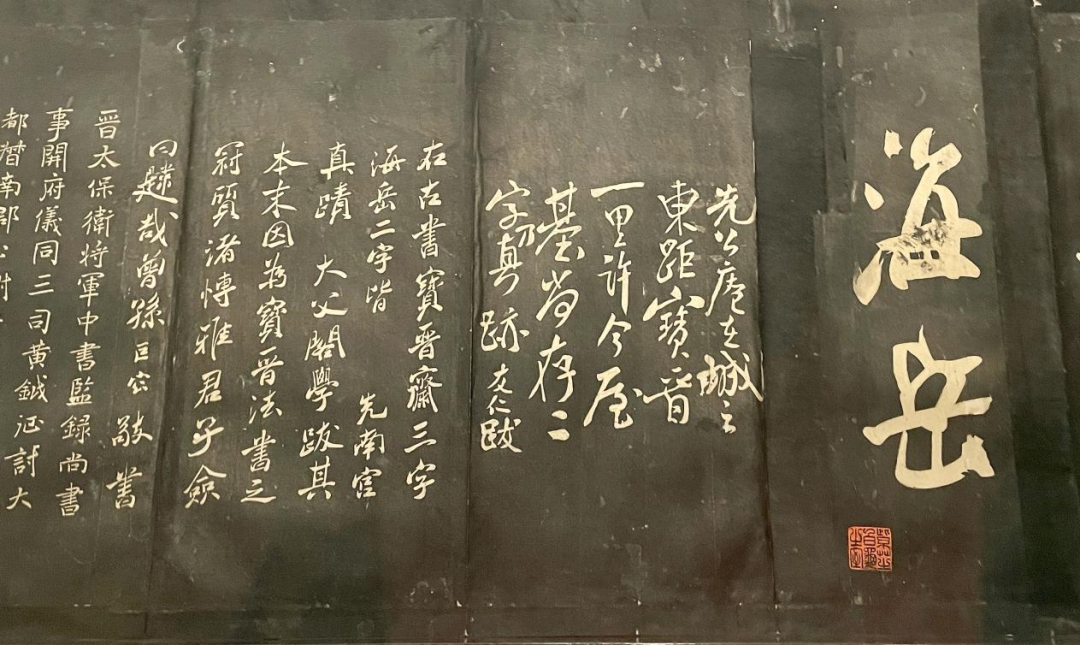 海
岳
先公庵在城之
東距寶晋
一里許今屋
基尚存二
字乃真跡友仁跋
右古書寶晋齋三字
海岳二字皆 先南宫
真蹟 大父閣學跋其
本末因為寶晋法書之
冠質諸博雅君子僉
曰韙哉曾孫巨宏敬書
晉太保衛將軍中書監録尚書
事開府儀同三司黄鉞征討大
都督南郡公